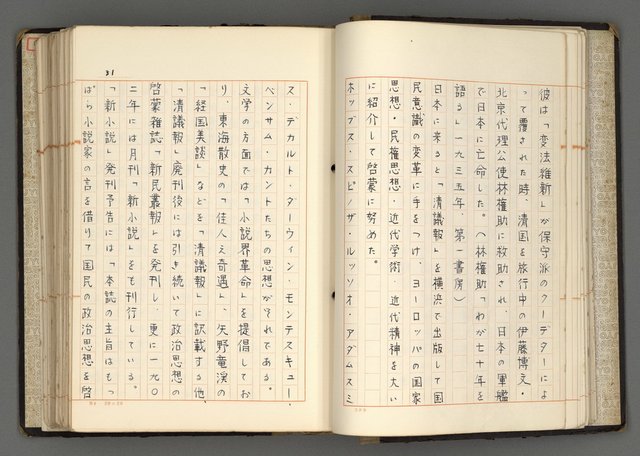 彼は「変法維新」が保守派のクーデターによ
って覆された時、清国を旅行中の伊藤博文・
北京代理公使林権助に救助され、日本の軍艦
で日本に亡命した。(林権助「わが七十年を
語る」一九三五年、第一書房)
日本に来ると「清議報」を横浜で出版して国
民意識の変革に手をつけ、ヨーロッパの国家
思想・民権思想・近代学術・近代精神を大い
に紹介して啓蒙に努めた。
ホッブス・スピノザ ルッソオ・アダムスミ
31
ス・デカルト・ダーウィン・モンテスキュー・
ベンサム・カントたちの思想がそれである。
文学の方面では「小説界革命」を提倡してお
り、東海散史の「佳人之奇遇」、矢野竜渓の
「経国美談」などを「清議報」に訳載する他、
「清議報」廃刊後には引き続いて政治思想の
啓蒙雑誌「新民叢報」を発刊し、更に一九〇
二年には月刊「新小説」をも刊行している。
「新小説」発刊予告には「本誌の主旨はもっ
ぱら小説家の言を借りて国民の政治思想を啓